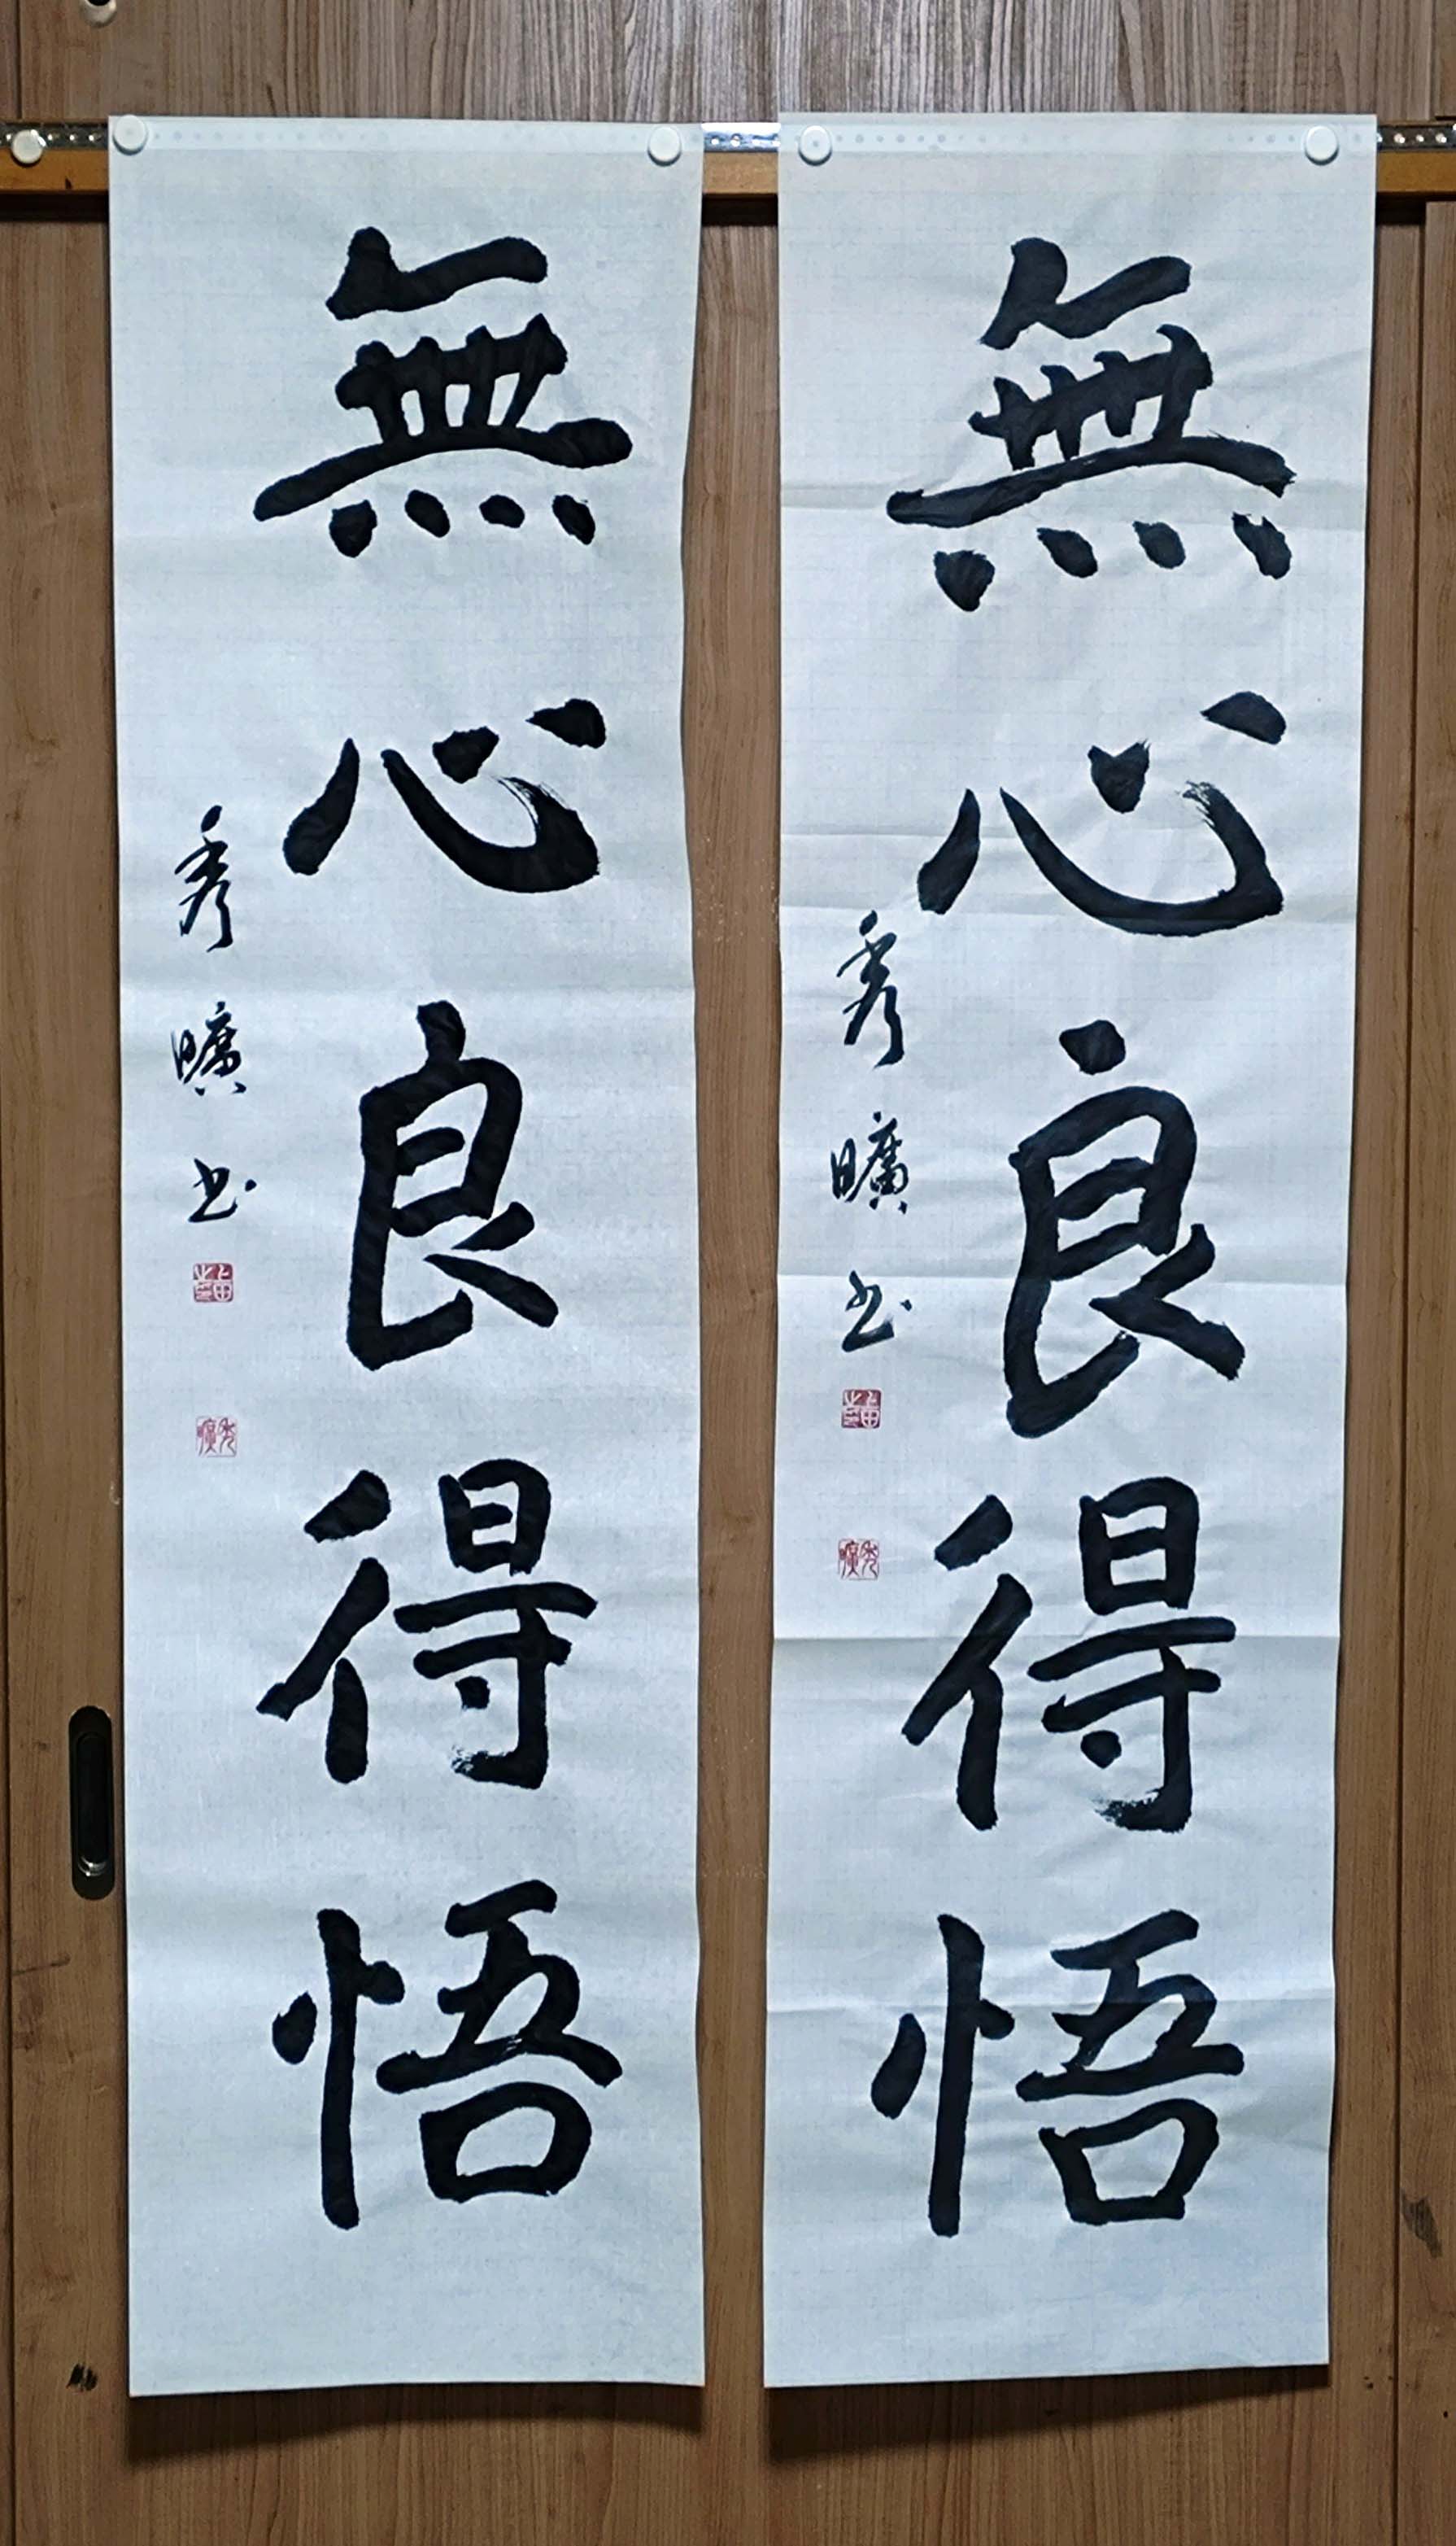 無心良得悟
秀曠書
秀曠
無心良得悟
秀曠書
秀曠